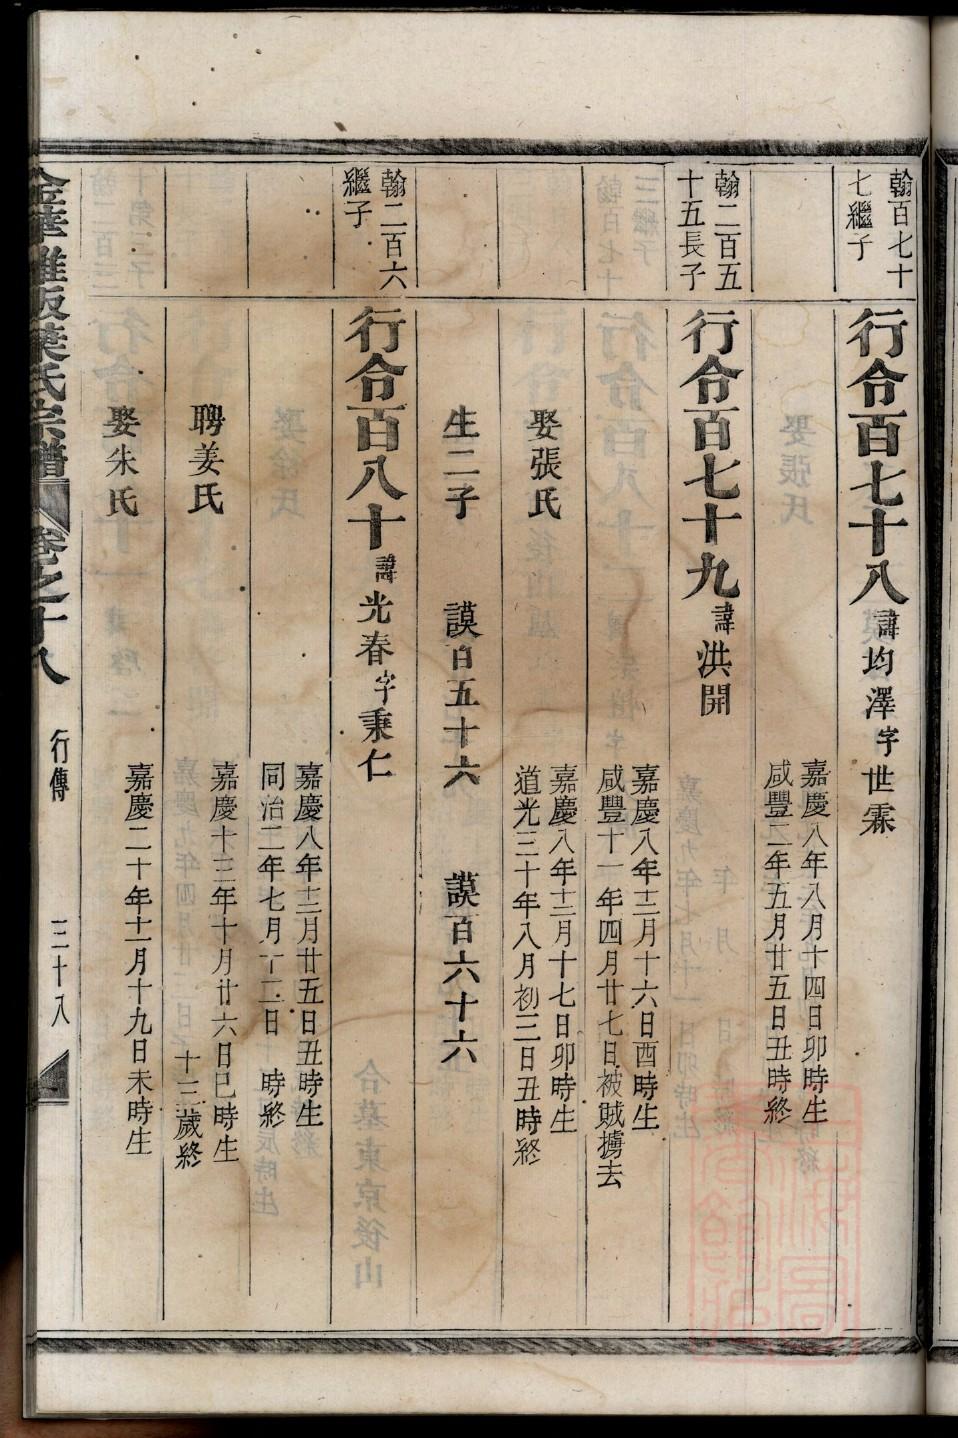 翰百七十
七繼子
行令百七十八諱均澤字世霖
嘉慶八年八月十四日卯時生
咸豐二年五月廿五日丑時終
翰二百五
十五長子
行令百七十九諱洪開
嘉慶八年十二月十六日酉時生
咸豐十一年四月廿七日被賊擄去
娶張氏
嘉慶八年十二月十七日卯時生
道光三十年八月初三日丑時終
生二子 謨百五十六 謨百六十六
翰二百六
繼子
行令百八十諱光春字秉仁
嘉慶八年十二月廿五日丑時生
同治二年七月十二日 時終
聘姜氏
嘉慶十三年十月廿六日巳時生
十三歲終
娶朱氏
嘉慶二十年十一月十九日未時生
葉氏宗譜 卷之十八 行傳 三十八